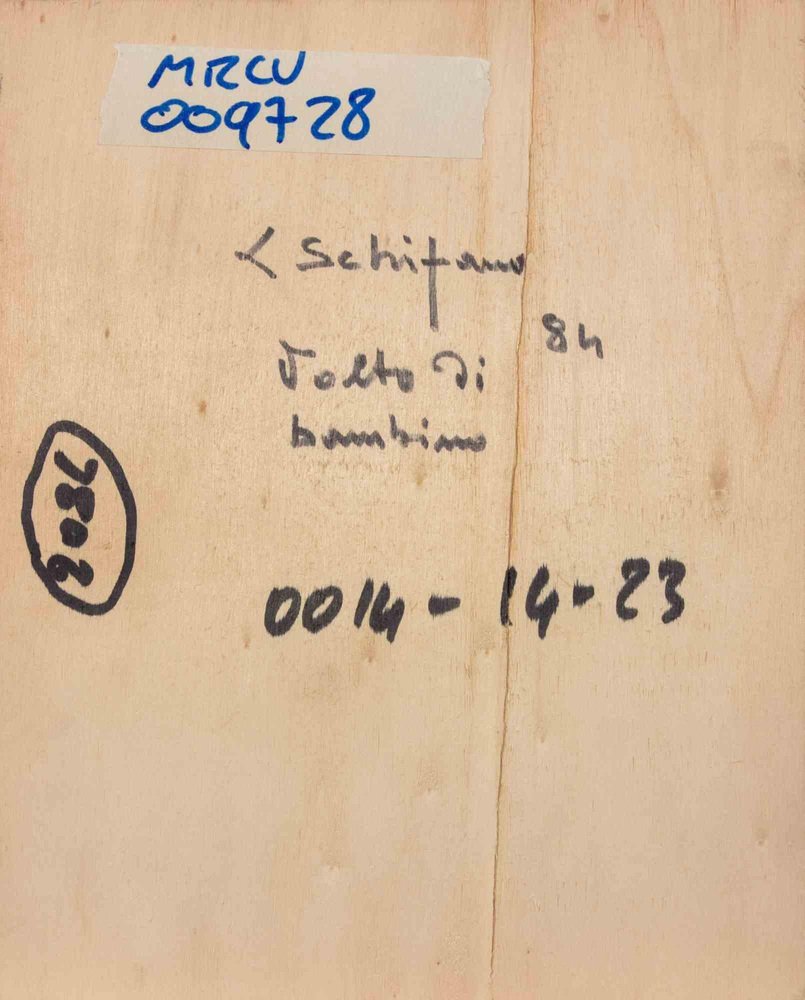 MRCU
009728
L Schifano
84
Volto di
bambino
0014 - 14 - 23